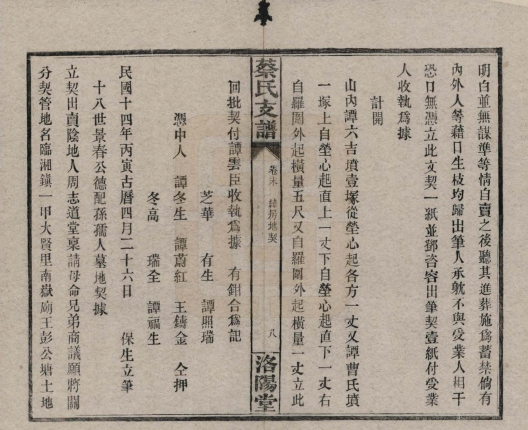 明白並無謀準等情自賣之後聽其進葬施爲蓄禁倘有
內外人等藉口生枝均歸出筆人承躭不與受業人相干
恐口無憑立此文契一紙並鄧咨容出筆契壹紙付受業
人收執爲據
計開
山內譚六吉墳壹塚從塋心起各方一丈又譚曹氏墳
一塚上自塋心起直上一丈下自塋心起直下一丈右
自羅圍外起橫量五尺又自羅圍外起橫量一丈立此
蔡氏支譜
卷末
地契
八
洛陽堂
回批契付譚雲臣收執爲據 有鉗合爲記
芝華 有生 譚照瑞
憑中人 譚冬生 譚蔚紅 王鑄金 仝押
冬高 瑞全 譚福生
民國十四年丙寅古曆四月二十六日 保生立筆
十八世景春公德配孫孺人墓地契據
立契出賣陰地人周志道堂稟請母命兄弟商議願將鬮
分契管地名臨湘鎮一甲大賢里南嶽廟王彭公塘土地